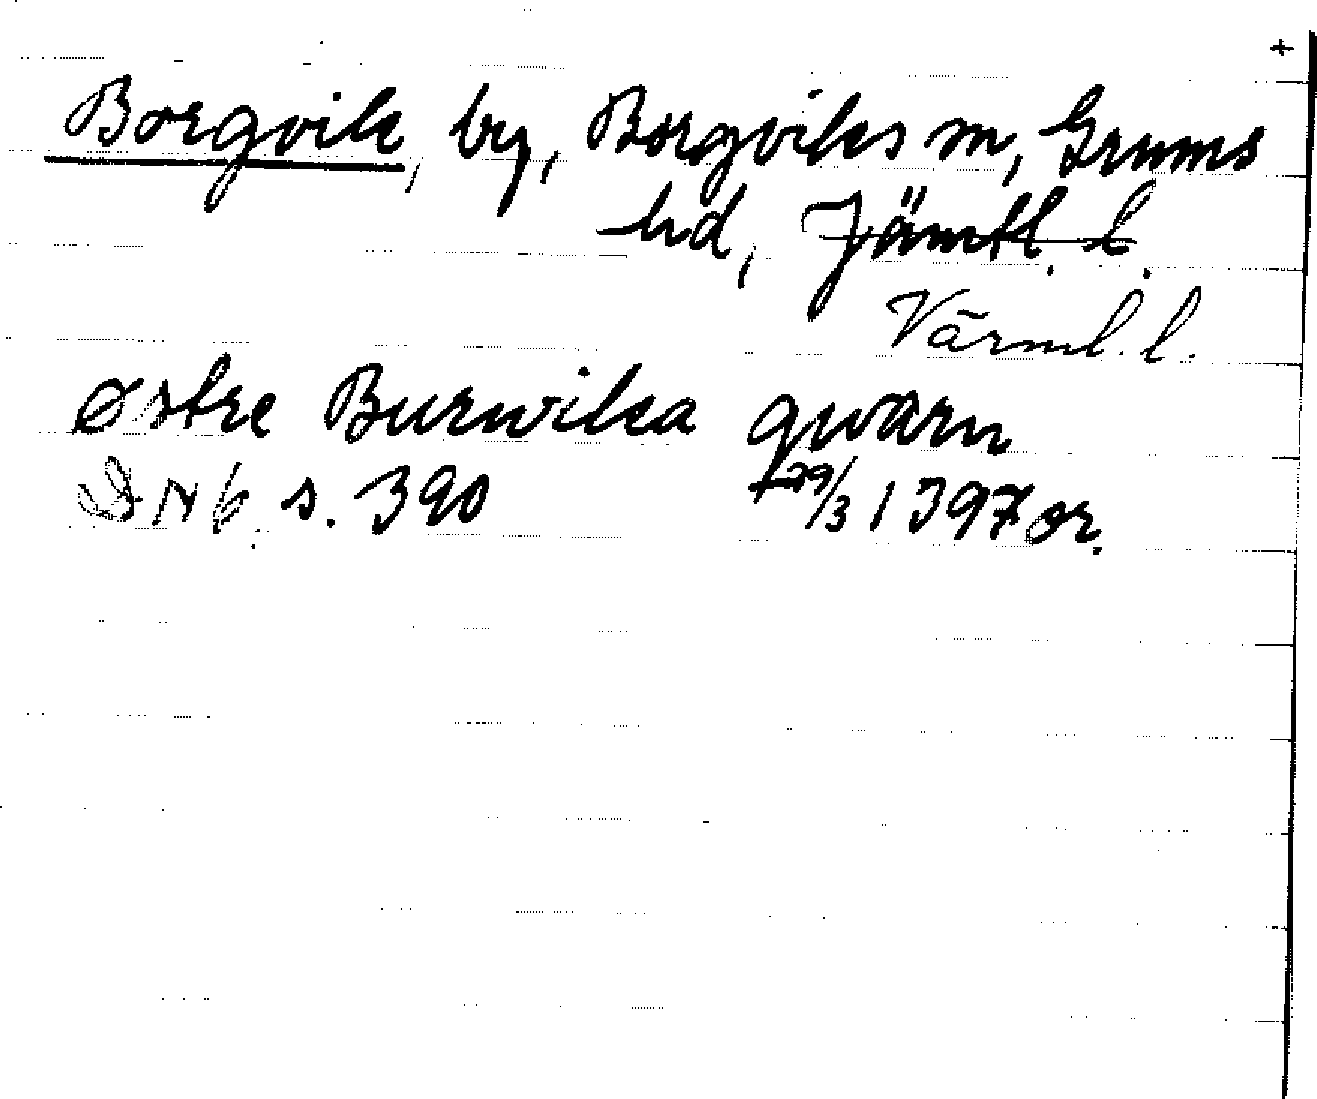 +
Borgvik, by, Borgviks sn, Grums
hd, Jämtl. l.
Värml. l.
Østre Burwika qwarn
DN 6. s. 390 29/3 1397 or.